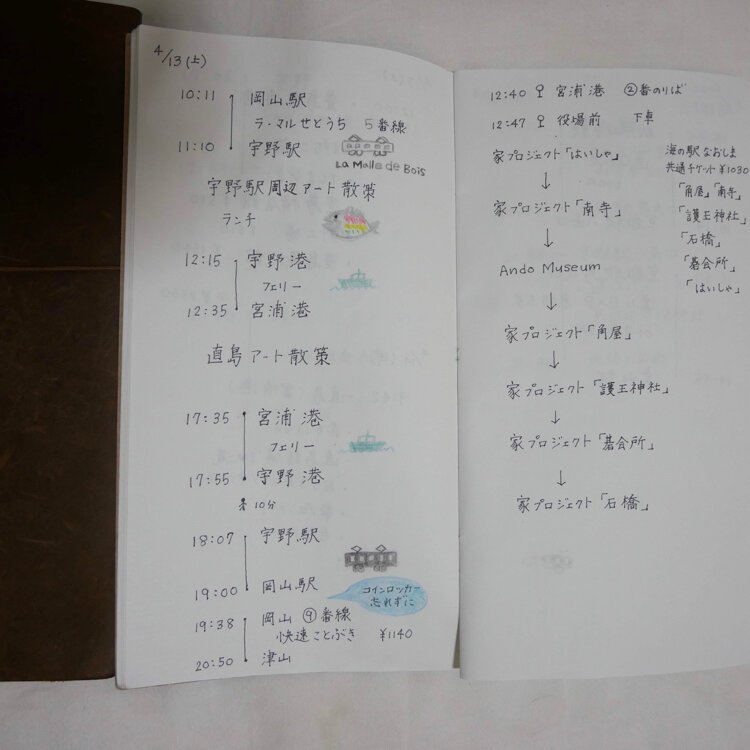 4/13(土)
10:11 岡山駅
ラ・マルせとうち 5番線
11:10 宇野駅
La Malle de Bois
宇野駅周辺アート散策
ランチ
12:15 宇野港
フェリー
12:35 宮浦港
直島アート散策
17:35 宮浦港
フェリー
17:55 宇野港
10分
18:07 宇野駅
19:00 岡山駅
コインロッカー
忘れずに
19:38 岡山 ⑨番線
快速ことぶき ¥1140
20:50 津山
12:40 宮浦港 ②番のりば
12:47 役場前 下車
家プロジェクト「はいしゃ」
↓
家プロジェクト「南寺」
↓
Ando Museum
↓
家プロジェクト「角屋」
↓
家プロジェクト「護王神社」
↓
家プロジェクト「碁会所」
↓
家プロジェクト「石橋」
海の駅なおしま
共通チケット ¥1030
「角屋」「南寺」
「護王神社」
「石橋」
「碁会所」
「はいしゃ」